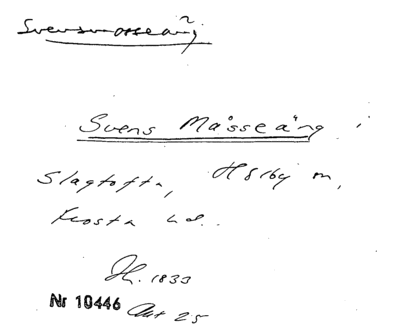 Svensmosseäng
Svens Måsseäng
Slagtofta, Hörby sn,
Frosta hd.
1833
Nr 10446 Akt 25